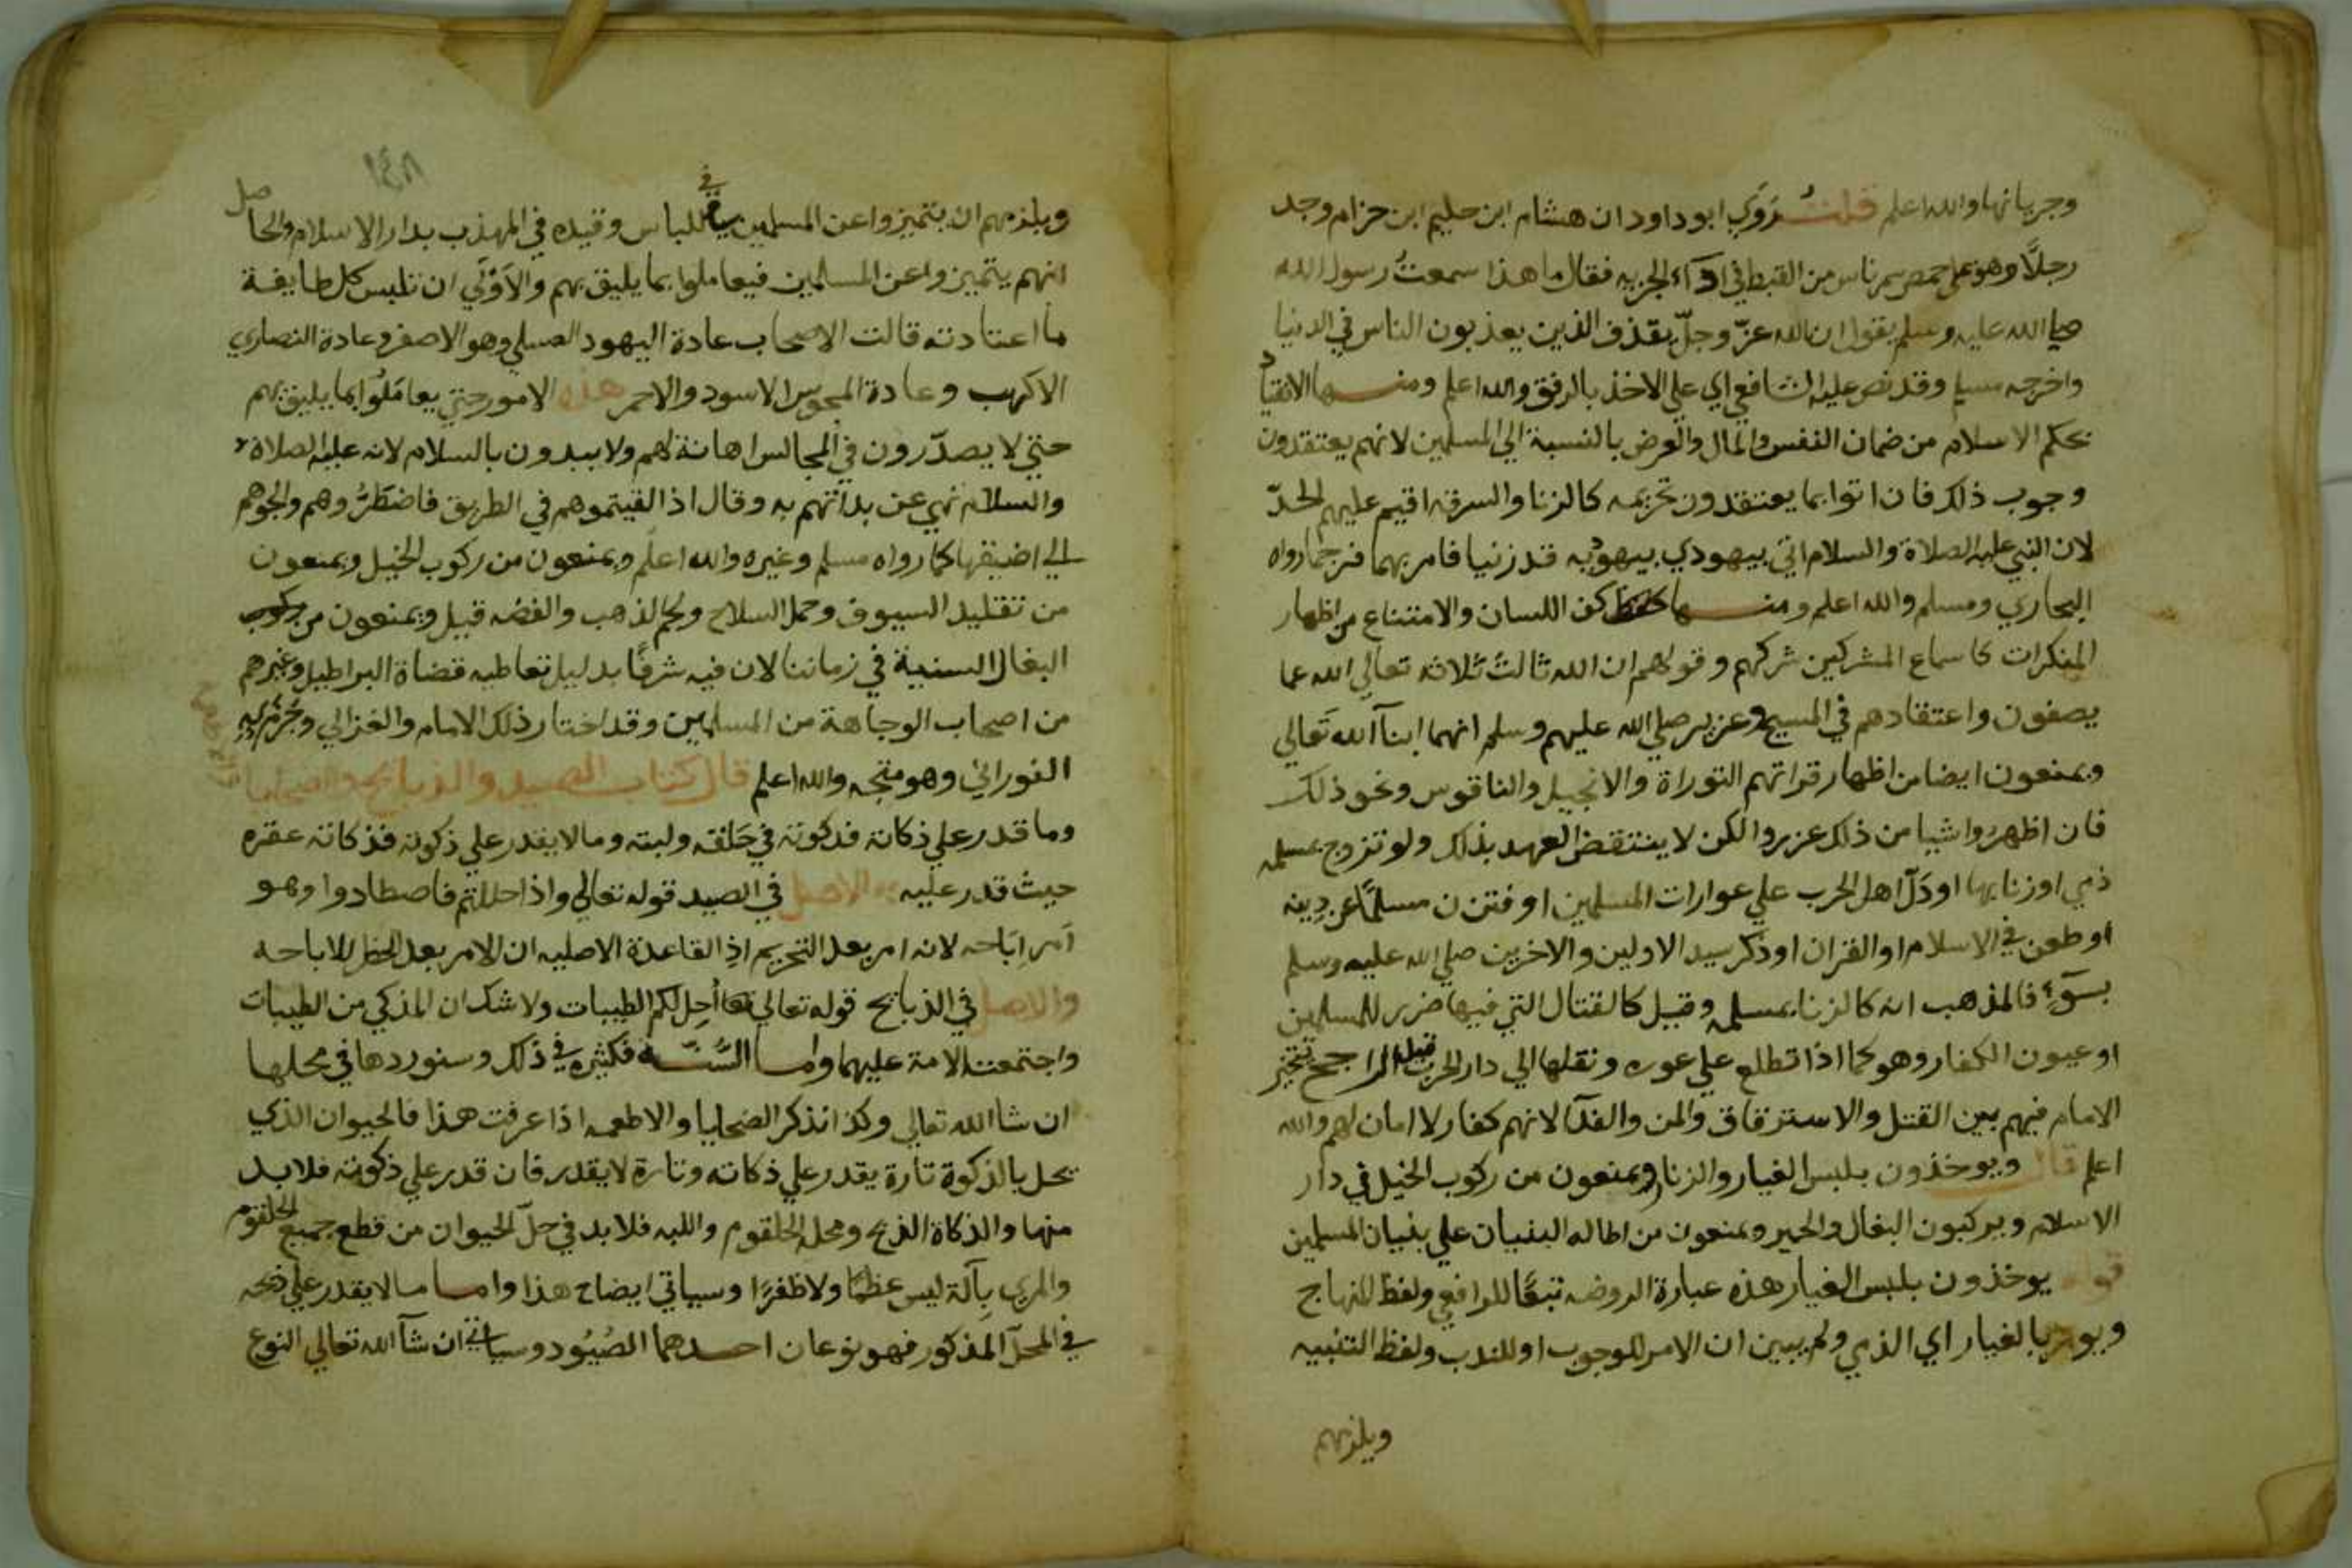 وجريانها والله اعلم قلت رَوَي ابو داود ان هشام ابن حليم ابن حزام وجد
رجلًا وهو علي حمص يسمر ناس من القبط في ادآء الجزيه فقال ما هذا سمعتُ رسول الله
صلي الله عليه وسلم يقول ان الله عزّ وجلّ يقذف الذين يعذبون الناس في الدنيا
واخرجه مسلم وقد نص عليه الشافعي اي علي الاخذ بالرفق والله اعلم ومنها الانقياد
بحكم الاسلام من ضمان النفس والمال والعرض بالنسبة الي المسلمين لانهم يعتقدون
وجوب ذلك فان اتوا بما يعتقدون تحريمه كالزنا والسرقه اقيم عليهم الحدّ
لان النبي عليه الصلاة والسلام اتي بيهودي بيهوديه قد زنيا فامر بهما فرجما رواه
البخاري ومسلم والله اعلم ومنها كف اللسان والامتناع من اظهار
المنكرات كاسماع المشركين شركهم وقولهم ان الله ثالث ثلاثه تعالي الله عما
يصفون واعتقادهم في المسيح وعزير صلي الله عليهم وسلم انهما ابنآ الله تعالي
ويمنعون ايضا من اظهار قراتهم التوراة والانجيل والناقوس ونحو ذلك
فان اظهروا شيا من ذلك عزروا لكن لا ينتقض العهد بذلك ولو تزوج بمسلمه
ذمي او زنا بها او دَلّ اهل الحرب علي عوارات المسلمين او فتن مسلمًا عن دينه
او طعن في الاسلام او القران او ذكر سيد الاولين والاخرين صلي الله عليه وسلم
بسوٓء فالمذهب انه كالزنا بمسلمه وقيل كالقتال التي فيها ضرر للمسلمين
او عيون الكفار وهو كما اذا تطلع علي عوره ونقلها الي دار الحرب قيل الراجح تخير
الامام فيهم بين القتل والاسترقاق والمن والفدآ لانهم كفار لا امان لهم والله
اعلم قال ويوخذون بلبس الغيار والزنار ويمنعون من ركوب الخيل في دار
الاسلام ويركبون البغال والحمير ويمنعون من اطاله البنيان علي بنيان المسلمين
قوله يوخذون بلبس الغيار هذه عبارة الروضه تبعًا للرافعي ولفظ المنهاج
ويومر بالغيار اي الذمي ولم يبين ان الامر للوجوب او للندب ولفظ التنبيه
ويلزمهم
ويلزمهم ان يتميزوا عن المسلمين في اللباس وقيده في المهذب بدار الاسلام والحاصل
انهم يتميزوا عن المسلمين فيعاملوا بما يليق بهم والاَوْلَي ان تلبس كل طايفة
ما اعتادته قالت الاصحاب عادة اليهود العسلي وهو الاصفر وعادة النصاري
الاكهب وعادة المجوس الاسود والاحمر هذه الامور حتي يعاملُوا بما يليق بهم
حتي لا يصدّرون في المجالس اهانة لهم ولا يبدون بالسلام لانه عليه الصلاة
والسلام نهي عن بداتهم به وقال اذا لقيتموهم في الطريق فاضطرُّوهم والجوهم
الي اضيقها كما رواه مسلم وغيره والله اعلم ويمنعون من ركوب الخيل ويمنعون
من تقليد السيوف وحمل السلاح ولجم الذهب والفضه قيل ويمنعون من ركوب
البغال السنية في زماننا لان فيه شرفًا بدليل تعاطيه قضاة البراطيل وغيرهم
من اصحاب الوجاهة من المسلمين وقد اختار ذلك الامام والغزالي وجزم به
الفوراني وهو متجه والله اعلم قال كتاب الصيد والذبايح والضحايا
وما قدر علي ذكاته فذكوته في حَلقه ولبته وما لا يقدر علي ذكوته فذكاته عقره
حيث قدر عليه الاصل في الصيد قوله تعالي واذا حللتم فاصطادوا وهو
اَمر اِبَاحه لانه امر بعد التحريم اذِ القاعدة الاصليه ان الامر بعد الحظر للاباحه
والاصل في الذبايح قوله تعالي اُحِل لكم الطيبات ولا شك ان المذكي من الطيبات
واجتمعت الامة عليهما واما السُّنّة فكثيره في ذلك وسنوردها في محلها
ان شا الله تعالي وكذا نذكر الضحايا والاطعمه اذا عرفت هذا فالحيوان الذي
يحل بالذكوة تارة يقدر علي ذكاته وتارة لا يقدر فان قدر علي ذكوته فلا بد
منها والذكاة الذبح ومحله الحلقوم واللبه فلا بد في حلّ الحيوان من قطع جميع الحلقوم
والمري بآلة ليس عظمًا ولا ظفرًا وسياتي ايضاح هذا واما ما لا يقدر علي ذبحه
في المحلّ المذكور فهو نوعان احدهما الصُيُود وسياتي ان شآ الله تعالي النوع